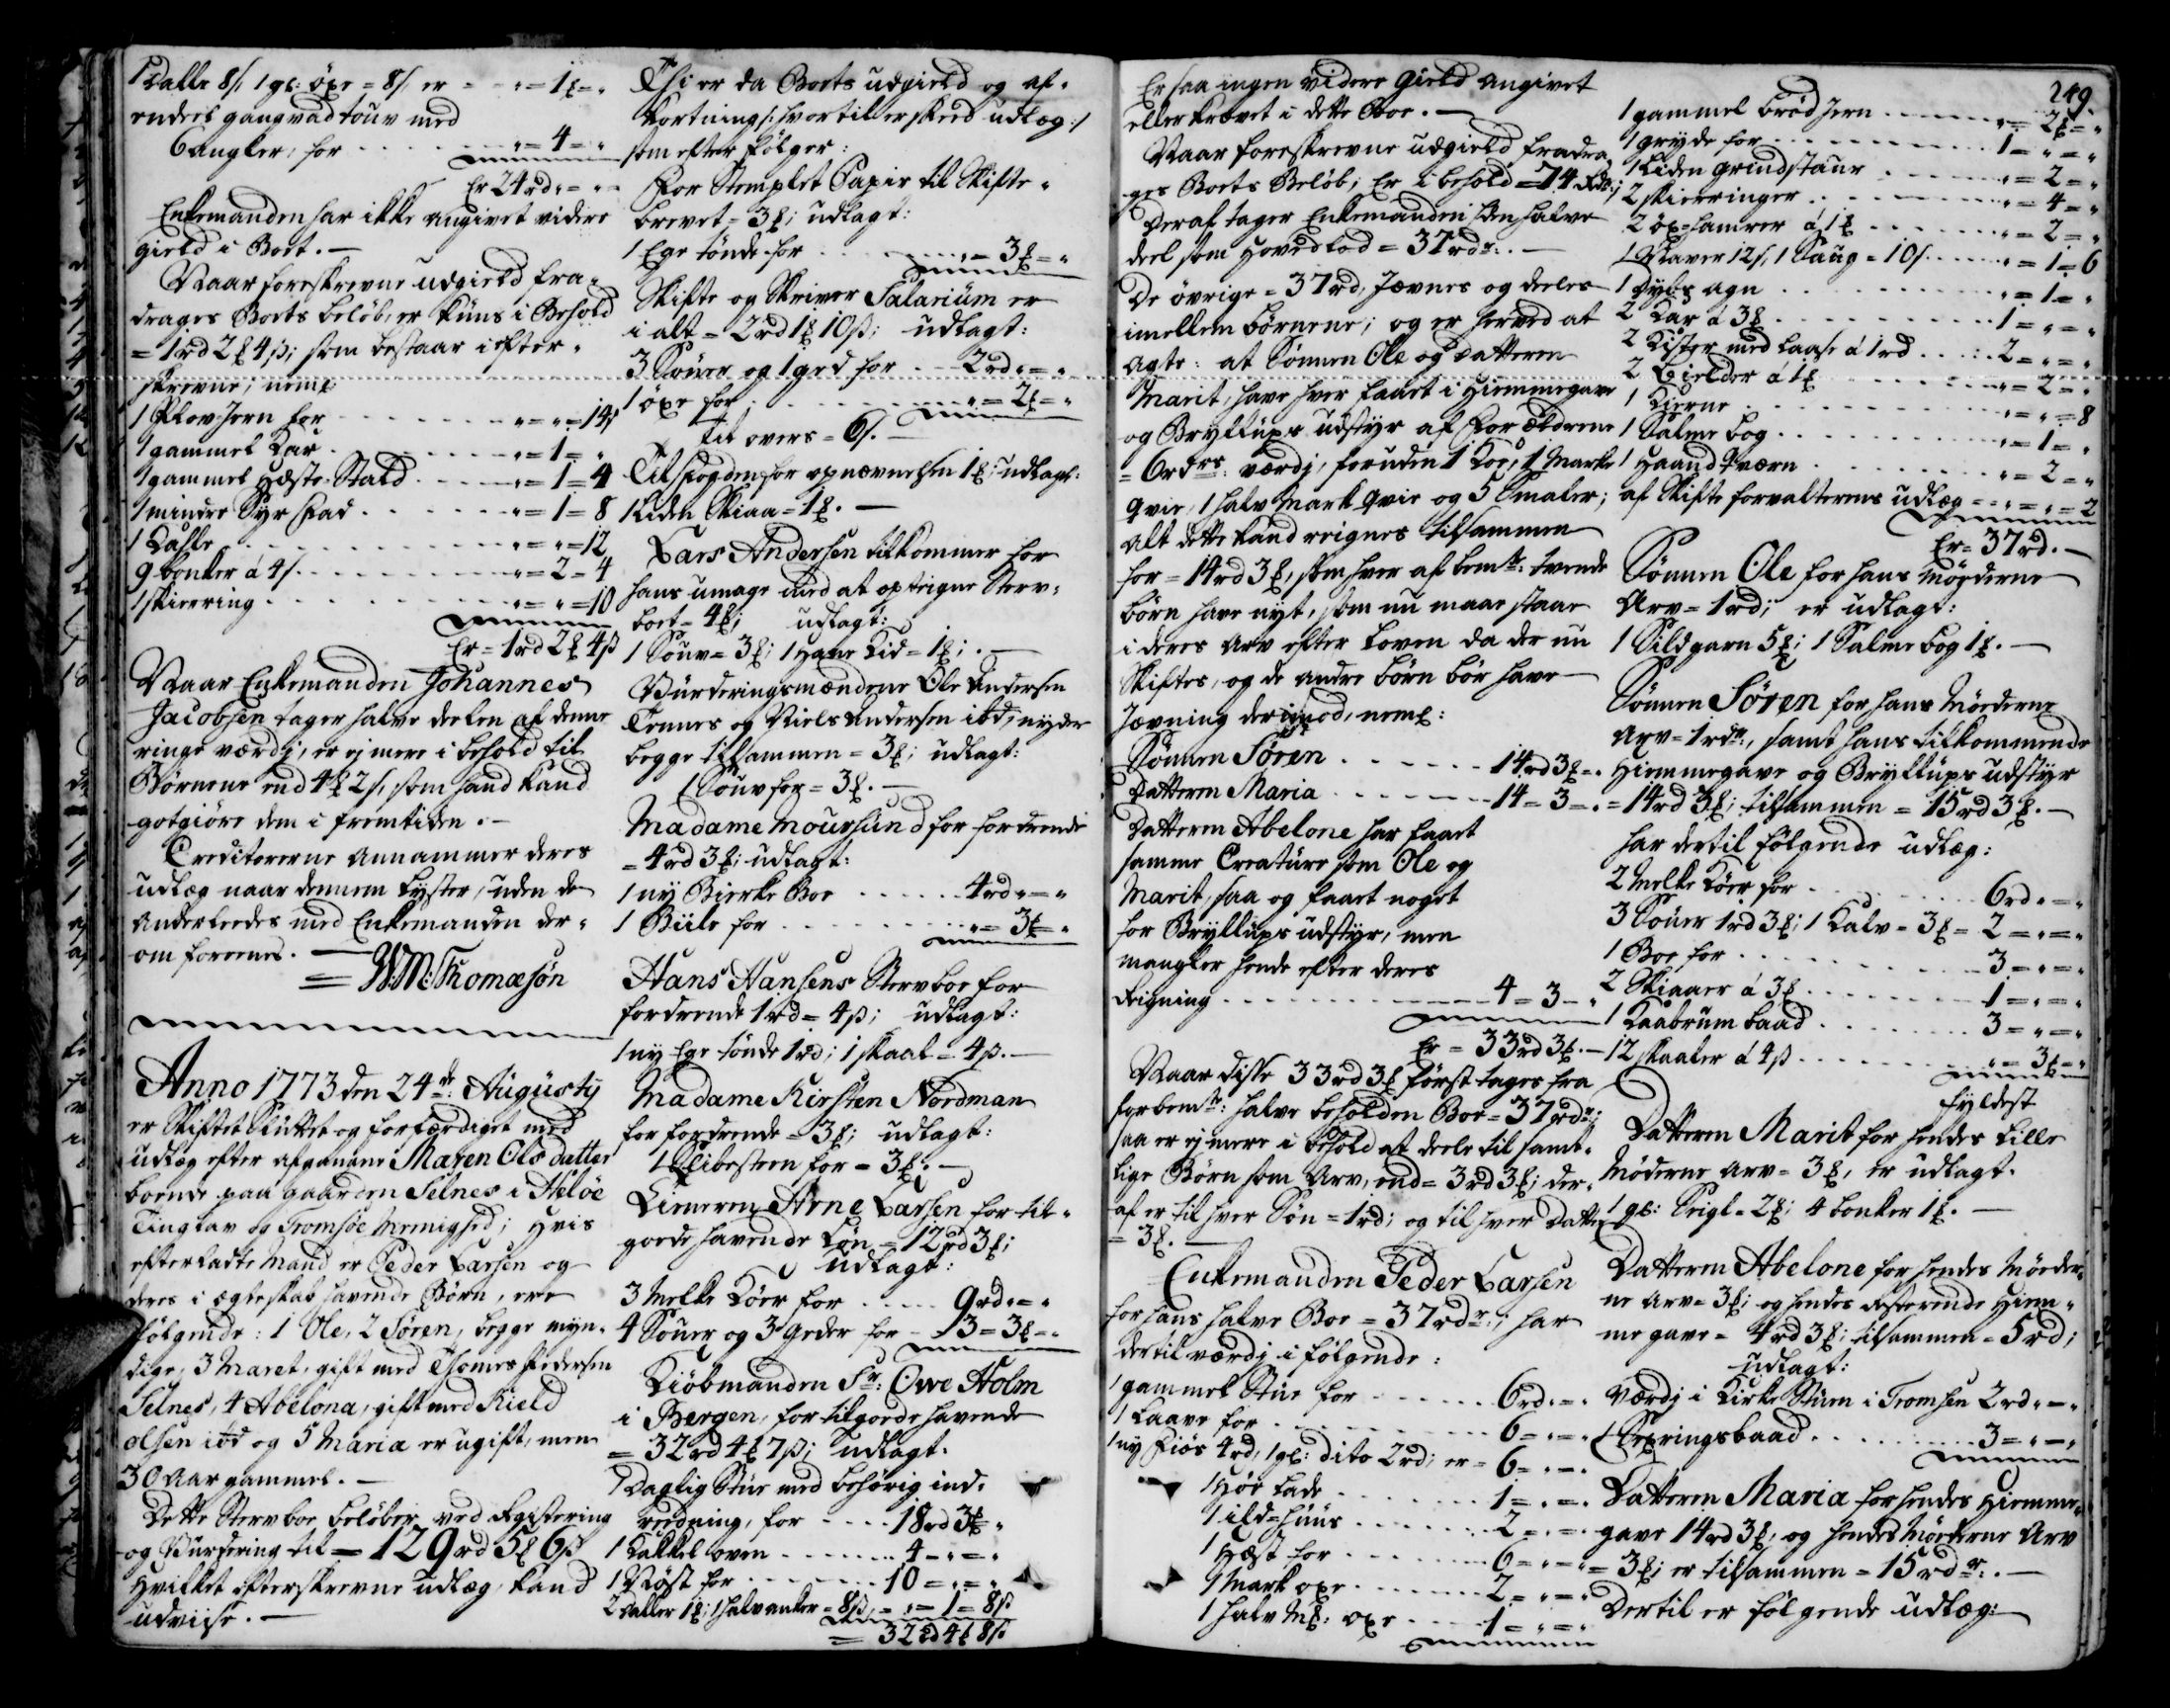 1 Balle 8/. 1 gl: öxe = 8/. er - - „ = 1 ƺ = „
endeel gangvad touv med
6 angler, for - - - - „ = 4 = „
Er 24 rd „ = „
Enkemanden har ikke angivet videre
gield i Boet. —
Naar foreskrevne udgield fra-
drages Boets beløb, er kuns i Behold
= 1 rd 2 ƺ 4 ß; som bestaar i efter-
skrevne, neml:
1 Plov Jern for - - - „ = „ = 14 ß
1 gammel Kar - - - „ = 1 = „
1 gammel Heste-Stald - - - „ = 1 = 4
1 mindre Syr Fad - - - „ = 1 = 8
1 - - - „ = „ = 12
9 bonker á 4/. - - - „ = 2 = 4
1 skiering - - - „ = „ = 10
Er = 1 rd 2 ƺ 4 ß
Naar Enkemanden Johannes
Jacobsen tager halve deelen af denne
ringe værdj, er ej mere i behold til
Børnene end 4 ƺ 2/, som hand kand
gotgiøre dem i fremtiden. —
Creditorerne annammer deres
udlæg naar dennem lyster, uden de
anderleedes med Enkemanden der-
om foreenes. —
W: M: Thomæsøn
Anno 1773 den 24de: Augusty
er Skiftet sluttet og forfærdiget med
udlæg efter afgangne Maren Ols datter
boende paa gaarden Selnes i Helöe
Tinglav og Tromsöe Menighed; hvis
efterladte Mand er Peder Larsen og
deres i ægteskab havende Børn, ere
følgende: 1 Ole, 2 Søren, begge myn-
dige, 3 Maret, gift med Thomes Pedersen
Selnes, 4 Abelona, gift med Kield
olsen ibd og 5 Maria er ugift, men
30 Aar gammel. —
Dette Sterboe beløber ved Registering
og Vurdering til = 129 rd 5 ƺ 6 ß
hvilket efterskrevne udlæg kand
udviise. —
Thi er da Boets udgield og af-
kortning /: hvortil er skeed udlæg :/
som efter følger:
For Stemplet Papir til Skifte-
brevet = 3 ƺ; udlagt:
1 Ege tønde for - - - „ = 3 ƺ = „
Skifte og Skriver Salarium er
i alt = 2 rd 1 ƺ 10 ß; udlagt:
3 Souer og 1 ged for - - 2 rd „ = „
1 öxe for - - - „ = 2 ƺ = „
til overs = 6/. —
Til Fogden for opnævnelsen 1 ƺ; udlagt:
1 liden Skiaa = 1 ƺ. —
Lars Andersen tilkommer for
hans umage med at opteigne Sterv-
boet = 4 ƺ; udlagt:
1 Souv = 3 ƺ; 1 Hane Kid = 1 ƺ; —
Vurderingsmændene Ole Andersen
Tennes og Niels Andersen ibd, nyder
begge tilsammen = 3 ƺ; udlagt:
1 Souv for = 3 ƺ. —
Madame Moursund for fordrende
= 4 rd 3 ƺ; udlagt:
1 ny Bierke Boe - - - 4 rd „ = „
1 Biile for - - - „ = 3 ƺ = „
Hans Hansens Stervboe for
fordrende 1 rd = 4 ß; udlagt:
1 ny Ege tønde 1 rd; 1 skaal = 4 ß. —
Madame Kirsten Nordman
for fordrende = 3 ƺ; udlagt:
1 Slibesteen for = 3 ƺ. —
Tienneren Arne Larsen for til-
goede havende Løn = 12 rd 3 ƺ;
udlagt:
3 Melke Köer for - - - 9 rd „ = „
4 Souer og 3 Geder for - - 3 = 3 ƺ = „
Kiöbmanden Sr: Owe Holm
i Bergen, for tilgoede havende
= 32 rd 4 ƺ 7 ß; udlagt.
1 Daglig Stue med behørig ind-
reedning, for - - - 18 rd 3 ƺ „
1 Kakkel oven - - - 4 = „ = „
1 Nöst for - - - 10 = „ = „
2 Baller 1 ƺ; 1 halvanker = 8 ß, = „ = 1 = 8 ß
= 32 rd 4 ƺ 8 ß
249.
Er saa ingen videre Gield angivet
eller krævet i dette Boe. —
Naar foreskrevne udgield fradra-
ges Boets Beløb; Er i behold = 74 rdr;
Deraf tager Enkemanden den halve
deel som Hovedlod = 37 rdr:. —
De øvrige = 37 rd, Jævnes og deeles
imellem børnene; og er herved at
agte: at Sønnen Ole og datteren
Marit, have hver faaet i Hiemmegave
og Bryllups udstyr af Forældrene
= 6 rdrs: værdj, foruden 1 Koe, 1 Marke
qvie, 1 halv Mark qvie og 5 Smaler;
alt dette kand reignes tilsammen
for = 14 rd 3 ƺ, som hver af bemte: tvende
børn have nyt, som nu maae staae
i deres arv efter loven da der nu
Skiftes, og de andre børn bør have
Jævning derimod, neml:
Sønnen Søren - - - 14 rd 3 ƺ = „
Datteren Maria - - - 14 = 3 = „
Datteren Abelone har faaet
samme Creature som Ole og
Marit, saa og faaet noget
for Bryllups udstyr, men
mangler hende efter deres
Reigning - - - 4 = 3 = „
Er = 33 rd 3 ƺ. —
Naar disse 33 rd 3 ƺ først tages fra
forbemte: halve beholden Boe = 37 rdr;
saa er ej mere i behold at deele til samt-
lige Børn som Arv, end = 3 rd 3 ƺ; der-
af er til hver Søn = 1 rd; og til hver Datter
= 3 ƺ. —
Enkemanden Peder Larsen
for hans halve Boe = 37 rdr:; har
dertil værdj i følgende:
1 gammel Stue for - - - 6 rd „ = „
1 Laave for - - - 6 = „ = „
1 ny Fiøs 4 rd, 1 gl: dito 2 rd; er = 6 = „ = „
1 Høe Lade - - - 1 = „ = „
1 ild-huus - - - 2 = „ = „
1 Hæst for - - - 6 = „ = „
1 Mark oxe - - - 2 = „ = „
1 halv Mk: oxe - - - 1 = „ = „
1 gammel brød Jern - - - „ = 2 ƺ = „
1 gryde for - - - 1 = „ = „
1 Liden grindstaur - - - „ = 2 = „
2 skieeringer - - - „ = 4 = „
2 öx-hamrer á 1 ƺ - - - „ = 2 = „
1 Naver 12/, 1 Saug = 10/. - - - „ = 1 = 6
1 Dybs agn - - - „ = 1 = „
2 Kar á 3 ƺ - - - 1 = „ = „
2 Kister med laase á 1 rd - - - 2 = „ = „
2 Bielder á 1 ƺ - - - „ = 2 = „
1 Kierne - - - „ = „ = 8
1 Salme bog - - - „ = 1 = „
1 Haand qværn - - - „ = 2 = „
af Skifte forvalterens udlæg - - „ = „ = 2
Er = 37 rd. —
Sønnen Ole for hans Möederne
Arv = 1 rd; er udlagt:
1 Sildgarn 5 ƺ; 1 Salme bog 1 ƺ. —
Sønnen Søren for hans Möederne
Arv = 1 rdr:, samt hans tilkommende
Hiemmegave og Bryllups udstyr
= 14 rd 3 ƺ; tilsammen = 15 rd 3 ƺ. —
har dertil følgende udlæg:
2 Melke Köer for - - - 6 rd „ = „
3 Souer 1 rd 3 ƺ; 1 Kalv = 3 ƺ = 2 = „ = „
1 Boe for - - - 3 = „ = „
2 Skiaaer á 3 ƺ - - - 1 = „ = „
1 Kaabrum baad - - - 3 = „ = „
12 skaaler á 4 ß - - - „ = 3 ƺ = „
fyldest
Datteren Marit for hendes lille
Möderne Arv = 3 ƺ, er udlagt.
1 gl: Seigl = 2 ƺ; 4 bonker 1 ƺ. —
Datteren Abelone for hendes Möeder-
ne Arv = 3 ƺ; og hendes resterende Hiem-
me gave = 4 rd 3 ƺ; tilsammen = 5 rd;
udlagt:
Værdj i Kirke Stuen i Tromsen 2 rd „ = „
1 Sexringsbaad - - - 3 = „ = „
Datteren Maria for hendes Hiemme-
gave 14 rd 3 ƺ, og hendes Möederne Arv
= 3 ƺ; er tilsammen = 15 rdr:. —
Dertil er følgende udlæg: